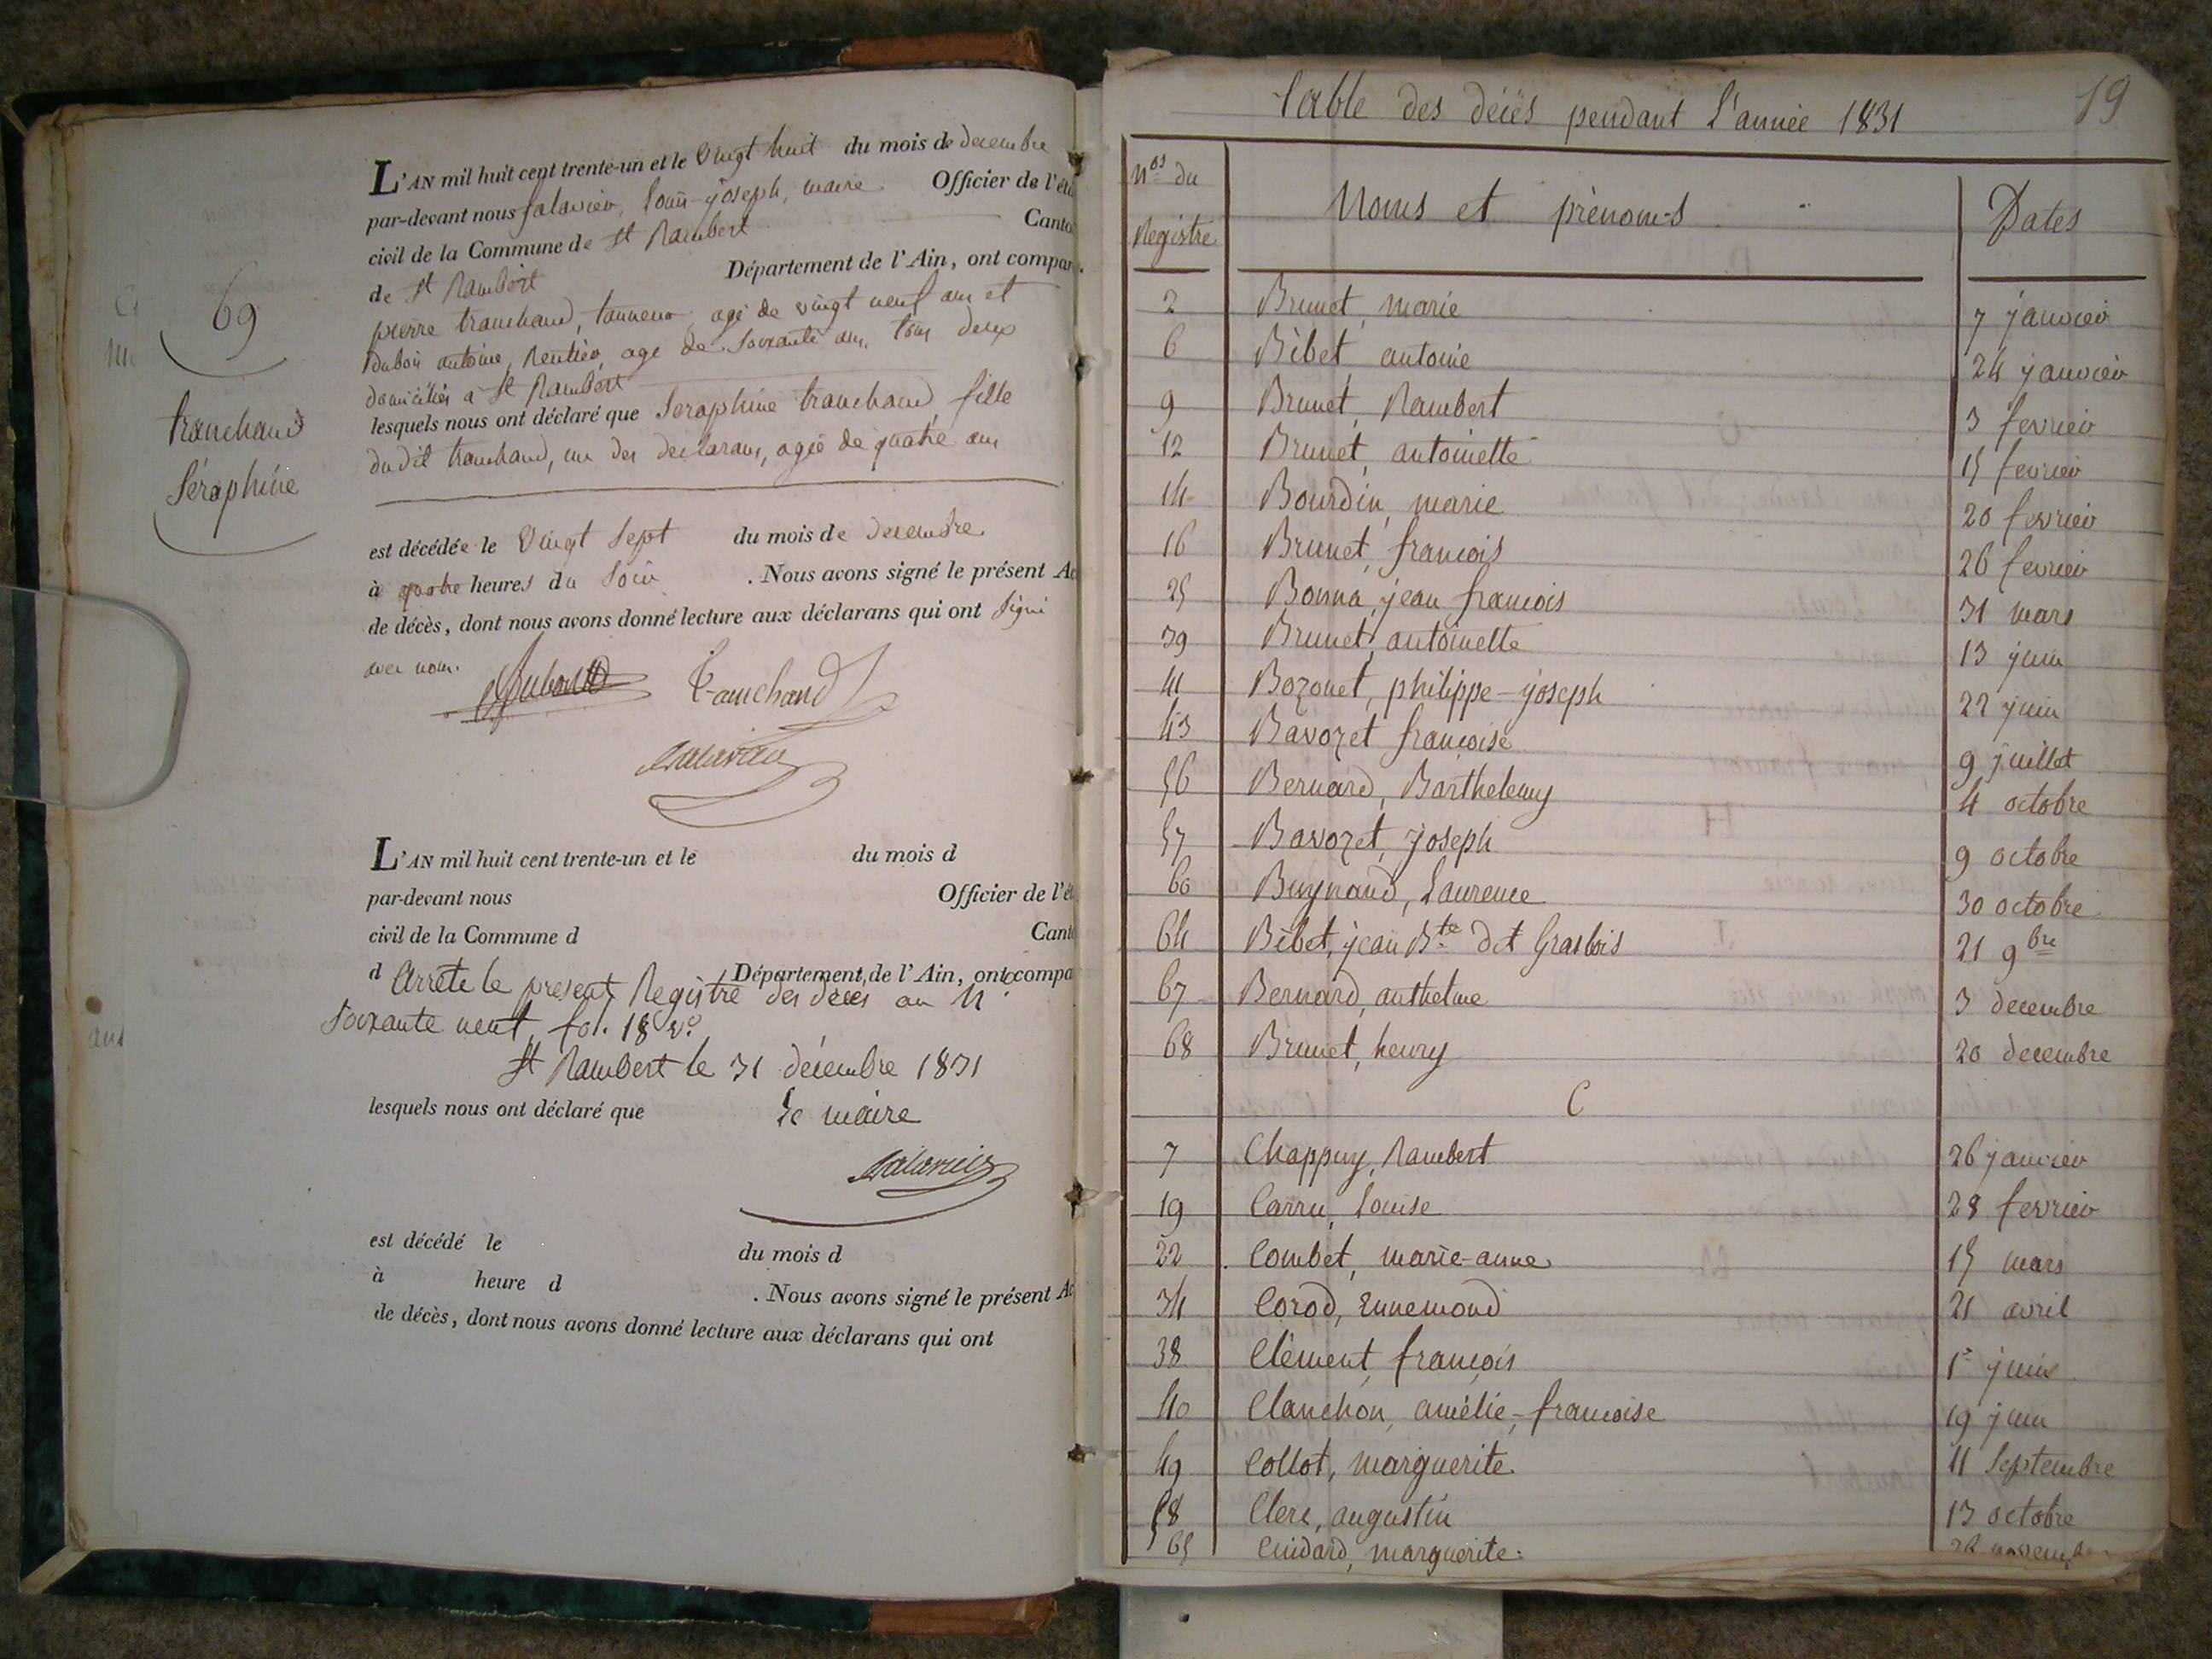 69
tranchand
Séraphine
L'AN mil huit cent trente-un et le vingt huit du mois de decembre
par-devant nous falavier, louis-joseph, maire. Officier de l'éta
civil de la Commune de St Rambert Canto
de St Rambert Département de l'Ain, ont compar
pierre tranchand, tanneur, agé de vingt neuf ans et
dubois antoine, Rentier, agé de soixante ans, tous deux
domiciliés a St Rambert
lesquels nous ont déclaré que Seraphine tranchand, fille
dudit tranchand, un des declarans, agée de quatre ans
est décédée le vingt sept du mois de decembre
à quatre heures du soir . Nous avons signé le présent Ac
de décès, dont nous avons donné lecture aux déclarans qui ont signé
avec nous.
Tranchand
L'AN mil huit cent trente-un et le du mois d
par-devant nous Officier de l'ét
civil de la Commune d Cant
d Département de l'Ain, ont compa
Arrêté le present Registre des deces au N°
soixante neuf, fol. 18 v°.
St Rambert le 31 décembre 1831
lesquels nous ont déclaré que le maire
est décédé le du mois d
à heure d . Nous avons signé le présent Ac
de décès, dont nous avons donné lecture aux déclarans qui ont
19
table des décès pendant L'année 1831
Nos du Registre Noms et prénoms Dates
2 Brunet, marie 7 janvier
6 Bébet, antoine 24 janvier
9 Brunet, Rambert 3 fevrier
12 Brunet, antoinette 15 fevrier
14 Bourdin, marie 20 fevrier
16 Brunet, francois 26 fevrier
25 Bonna, jean francois 31 mars
39 Brunet, antoinette 13 juin
41 Bozonet, philippe-joseph 22 juin
43 Bavozet francoise 9 juillet
56 Bernard, Barthelemy 4 octobre
57 Bavozet, joseph 9 octobre
60 Buynand, Laurence 30 octobre
64 Bébet, jean Bte dit Grasbois 21 9bre
67 Bernard, anthelme 3 decembre
68 Brunet, henry 20 decembre
C
7 Chappuy, Rambert 26 janvier
19 Carru, Louise 28 fevrier
22 Combet, marie-anne 15 mars
34 Corod, Ennemond 21 avril
38 Clément, françois 1er juin
40 Clanchon, amélie-francoise 19 juin
49 Collot, marguerite 11 septembre
58 Clerc, augustin 13 octobre
65 Cuidard, marguerite